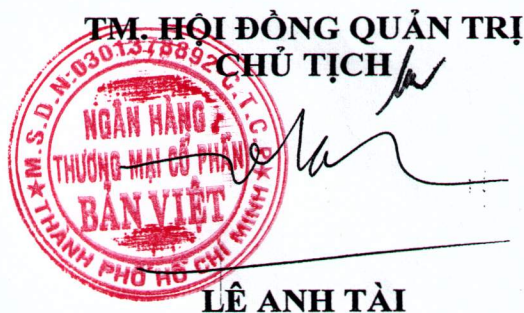 TM. HỘI ĐỒNG QUẢN TRỊ
CHỦ TỊCH
M.S.D.N:0301378892-C.T.C.P
NGÂN HÀNG
THƯƠNG MẠI CỔ PHẦN
BẢN VIỆT
THÀNH PHỐ HỒ CHÍ MINH
LÊ ANH TÀI